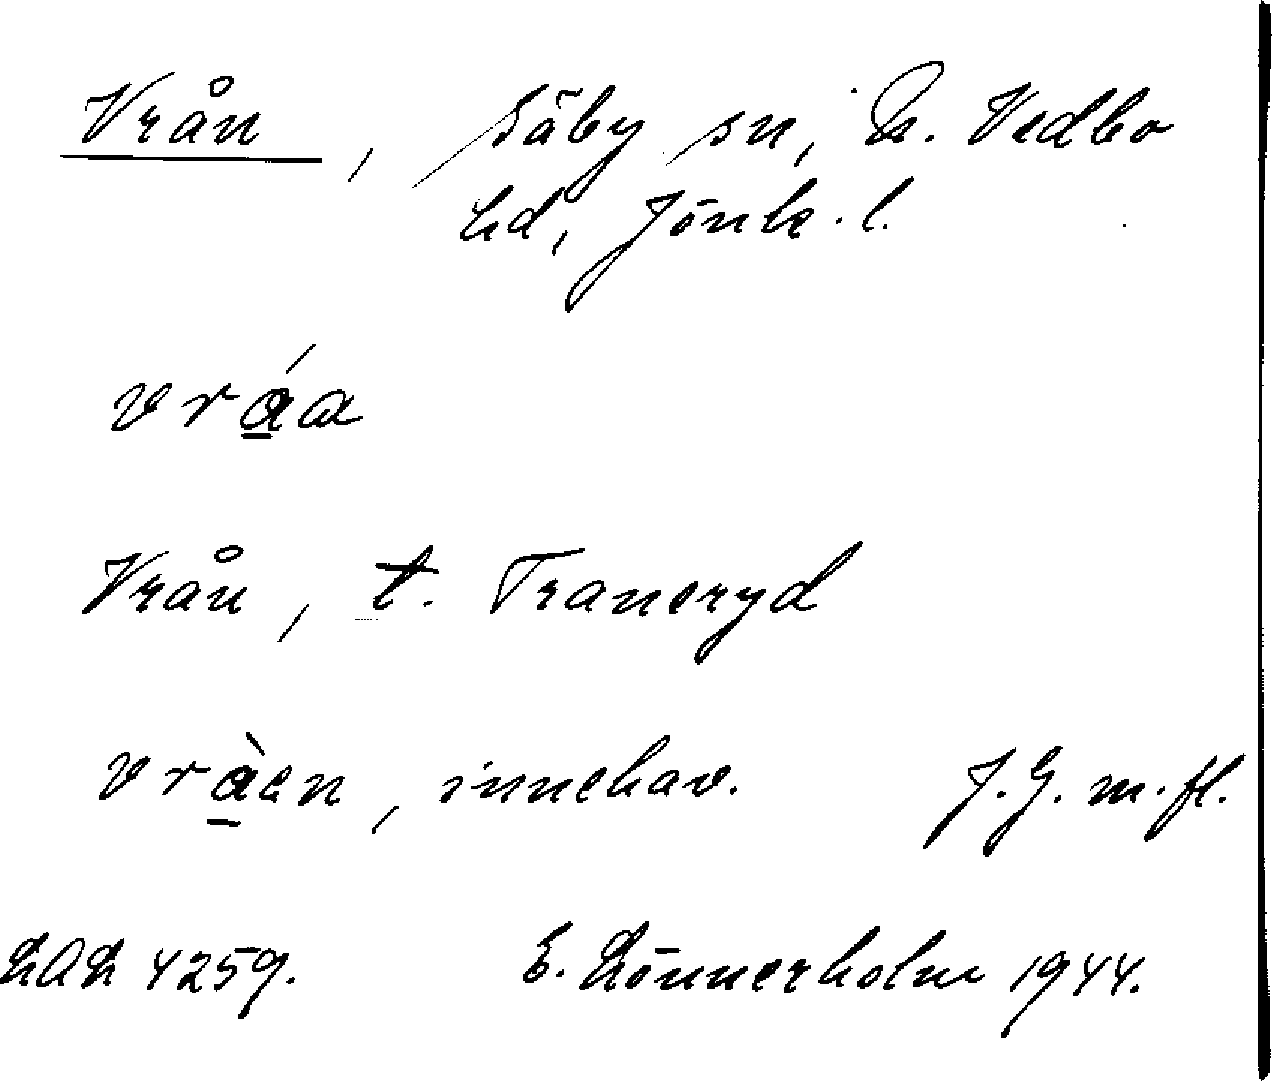 Vrån, Säby sn, N. Vedbo
hd, Jönk. l.
vráa
Vrån, t. Traneryd
vràen, innehav. J.G. m. fl.
LAL 4259. E. Lönnerholm 1944.